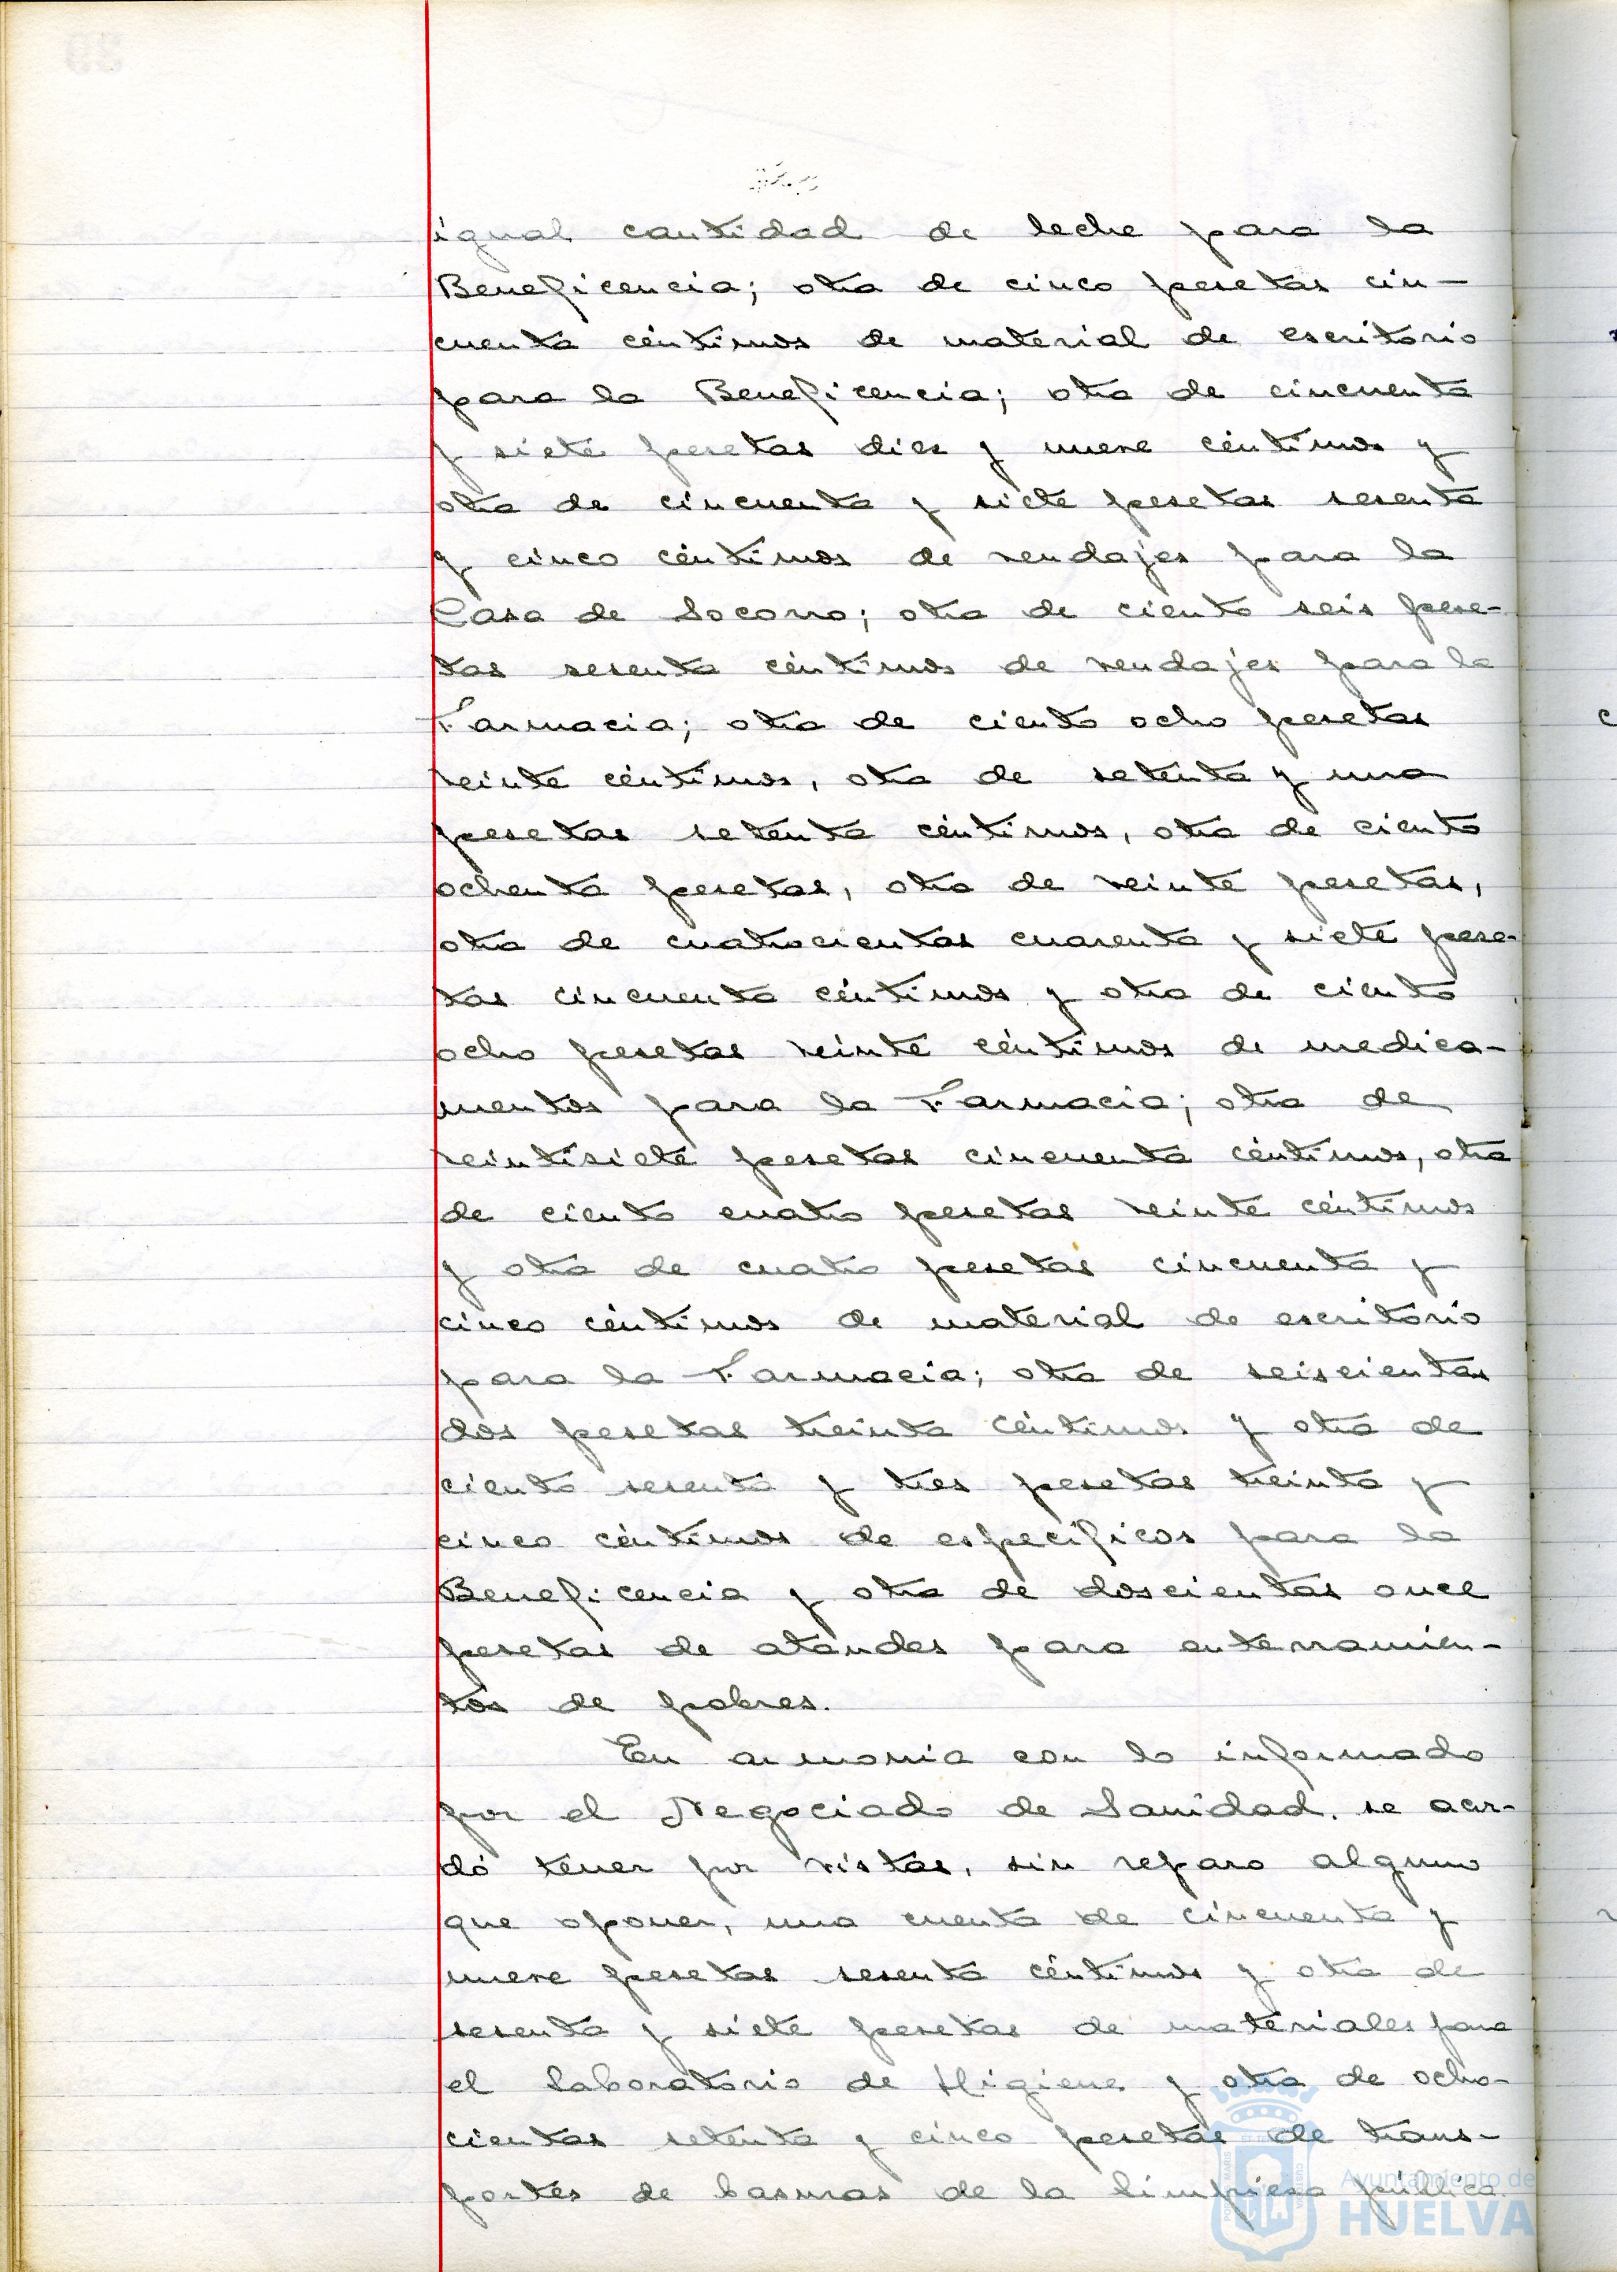 igual cantidad de leche para la
Beneficencia; otra de cinco pesetas cin-
cuenta céntimos de material de escritorio
para la Beneficencia; otra de cincuenta
y siete pesetas diez y nueve céntimos y
otra de cincuenta y siete pesetas sesenta
y cinco céntimos de vendajes para la
Casa de Socorro; otra de ciento seis pese-
tas sesenta céntimos de vendajes para la
Farmacia; otra de ciento ocho pesetas
veinte céntimos, otra de setenta y una
pesetas setenta céntimos, otra de ciento
ochenta pesetas, otra de veinte pesetas,
otra de cuatrocientas cuarenta y siete pese-
tas cincuenta céntimos y otra de ciento
ocho pesetas veinte céntimos de medica-
mentos para la Farmacia; otra de
veintisiete pesetas cincuenta céntimos, otra
de ciento cuatro pesetas veinte céntimos
y otra de cuatro pesetas cincuenta y
cinco céntimos de material de escritorio
para la Farmacia; otra de seiscientas
dos pesetas treinta céntimos y otra de
ciento sesenta y tres pesetas treinta y
cinco céntimos de específicos para la
Beneficencia y otra de doscientas once
pesetas de ataudes para enterramien-
tos de pobres.
En armonia con lo informado
por el Negociado de Sanidad. se acor-
dó tener por vistas, sin reparo alguno
que oponer, una cuenta de cincuenta y
nueve pesetas sesenta céntimos y otra de
sesenta y siete pesetas de materiales para
el Laboratorio de Higiene y otra de ocho-
cientas setenta y cinco pesetas de trans-
portes de basuras de la limpieza pública.
Ayuntamiento de
HUELVA